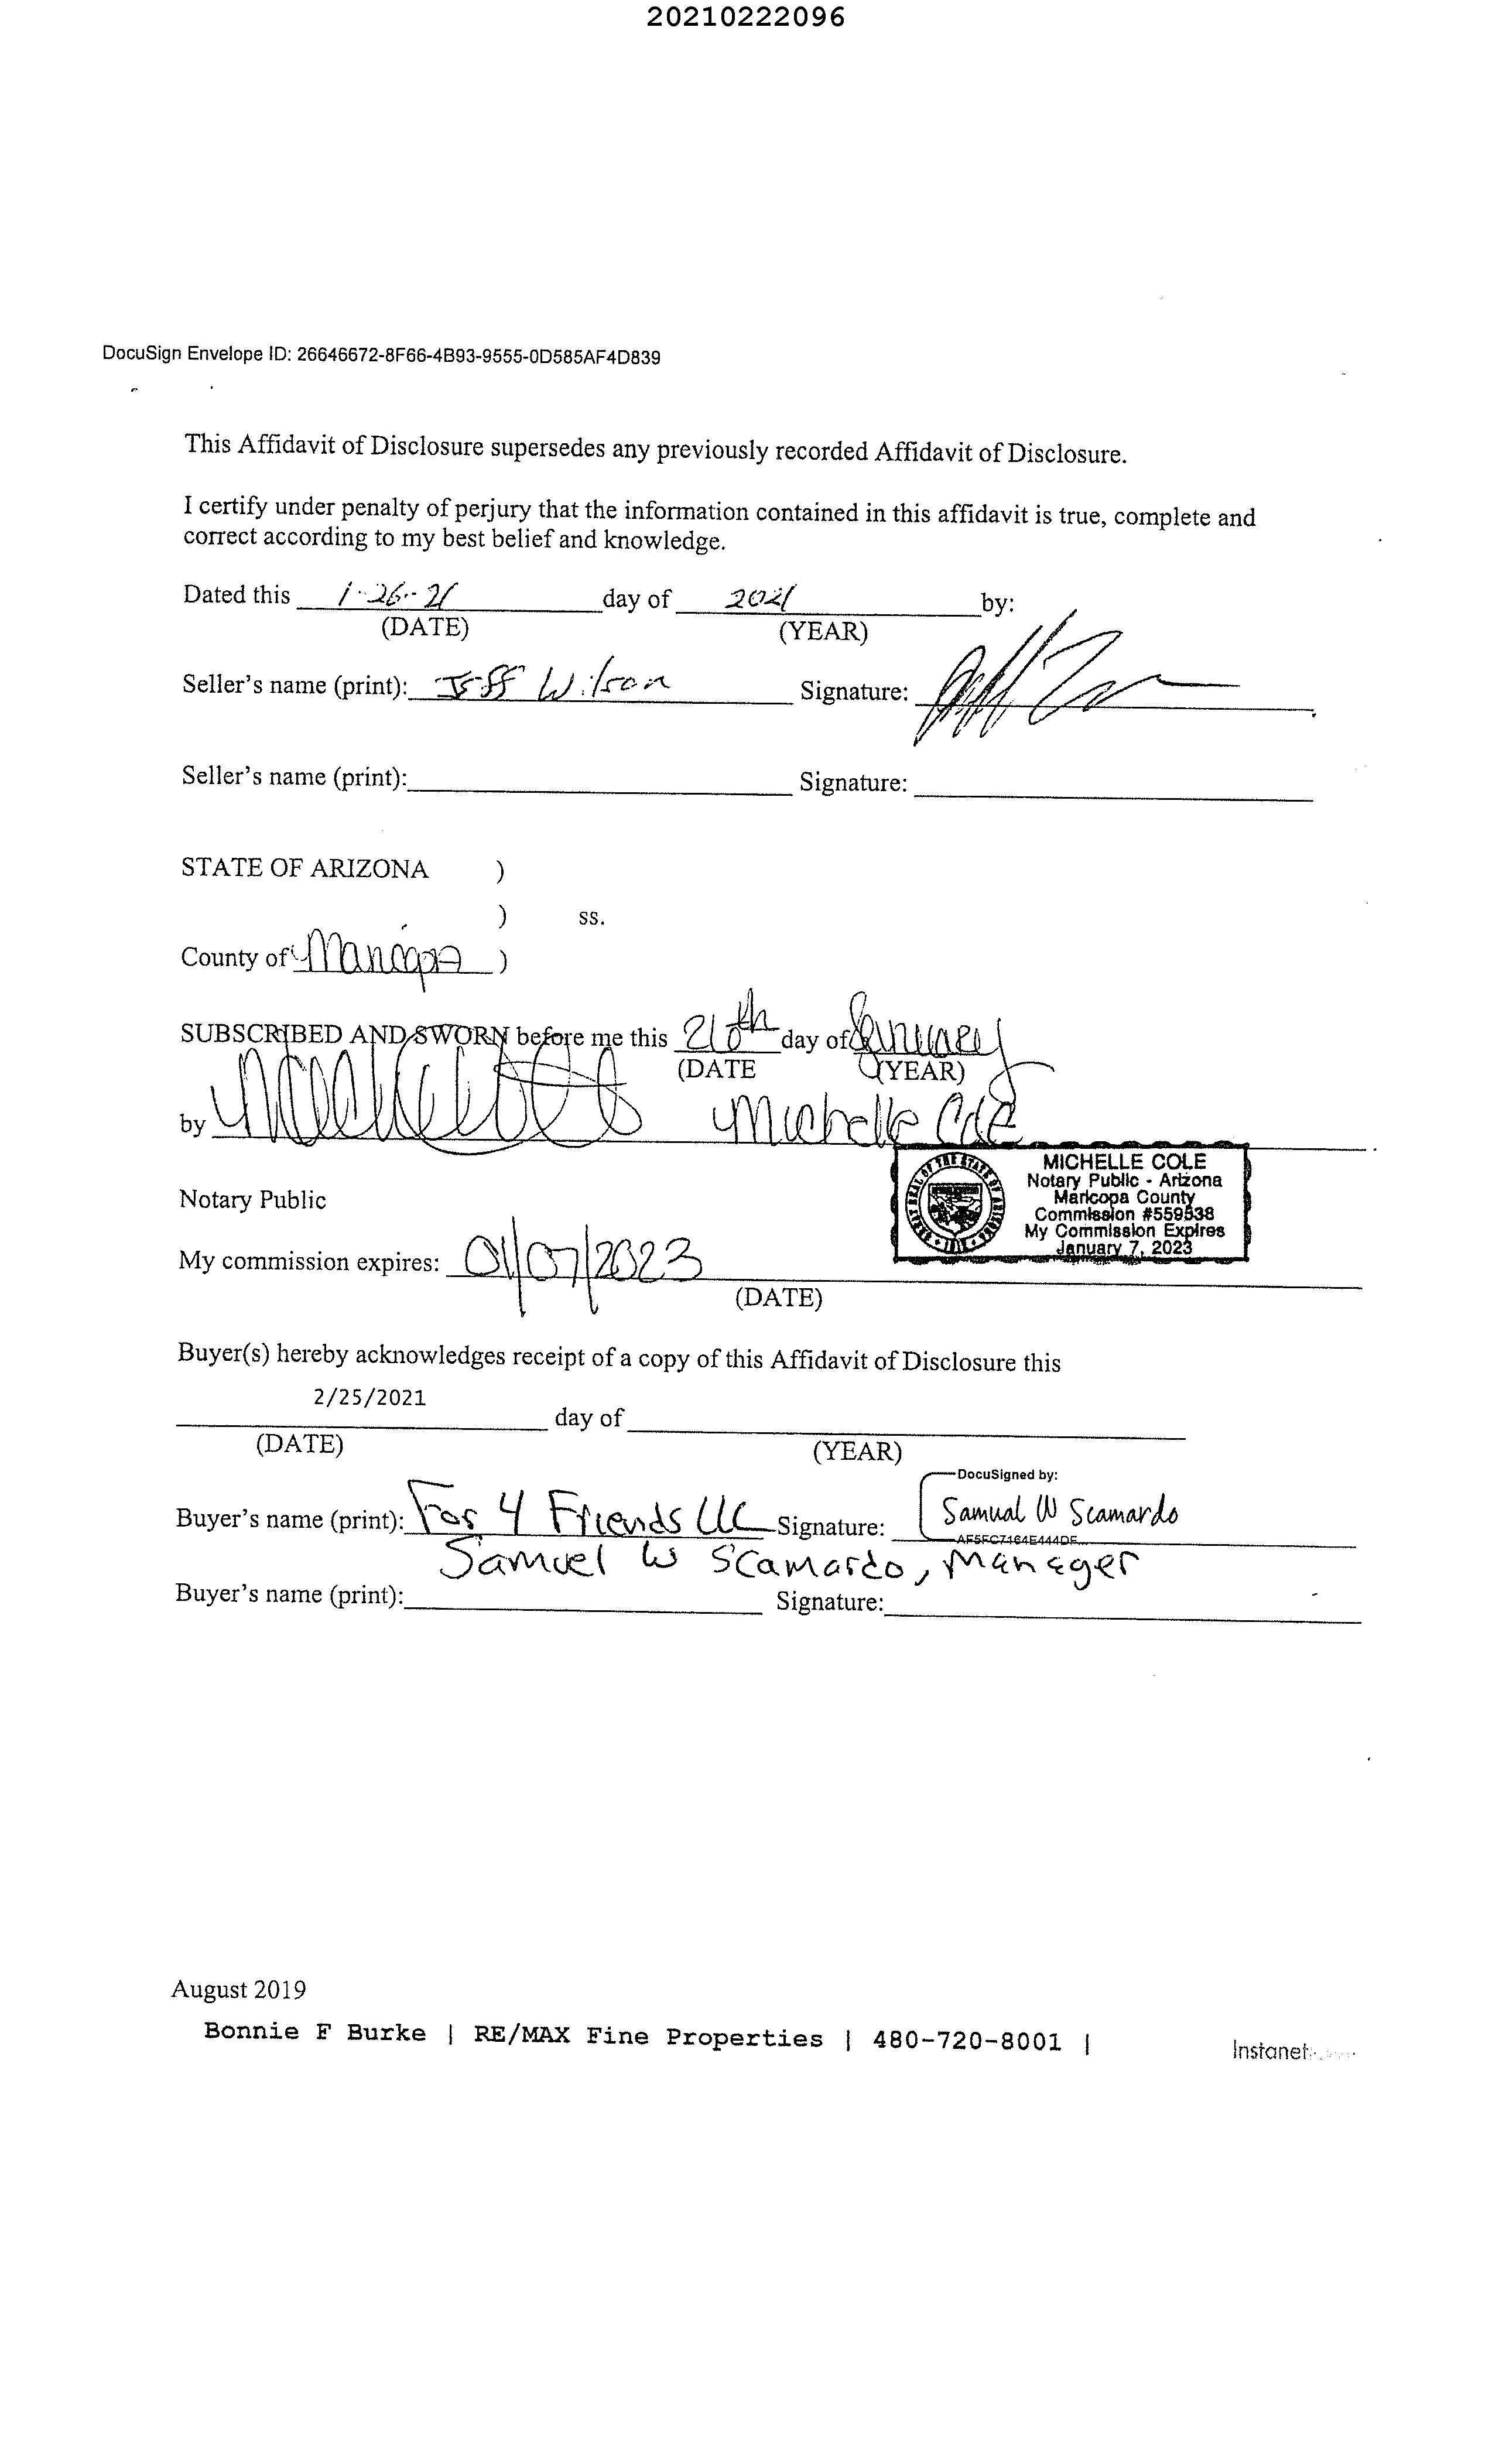 20210222096
DocuSign Envelope ID: 26646672-8F66-4B93-9555-0D585AF4D839
This Affidavit of Disclosure supersedes any previously recorded Affidavit of Disclosure.
I certify under penalty of perjury that the information contained in this affidavit is true, complete and
correct according to my best belief and knowledge.
Dated this 1-26-21 day of 2021 by:
(DATE) (YEAR)
Seller's name (print): Jeff Wilson Signature:
Seller's name (print): Signature:
STATE OF ARIZONA )
) ss.
County of Maricopa )
SUBSCRIBED AND SWORN before me this day of January
(DATE (YEAR)
by Michelle Cole
MICHELLE COLE
Notary Public - Arizona
Maricopa County
Commission #559538
My Commission Expires
January 7, 2023
Notary Public
My commission expires: 01/07/2023
(DATE)
Buyer(s) hereby acknowledges receipt of a copy of this Affidavit of Disclosure this
2/25/2021 day of
(DATE) (YEAR)
DocuSigned by:
Buyer's name (print): For 4 Friends LLC Signature: Samual W Scamardo
AF5FC7164E444DF...
Samuel W Scamardo, Manager
Buyer's name (print): Signature:
August 2019
Bonnie F Burke | RE/MAX Fine Properties | 480-720-8001 |
Instanet